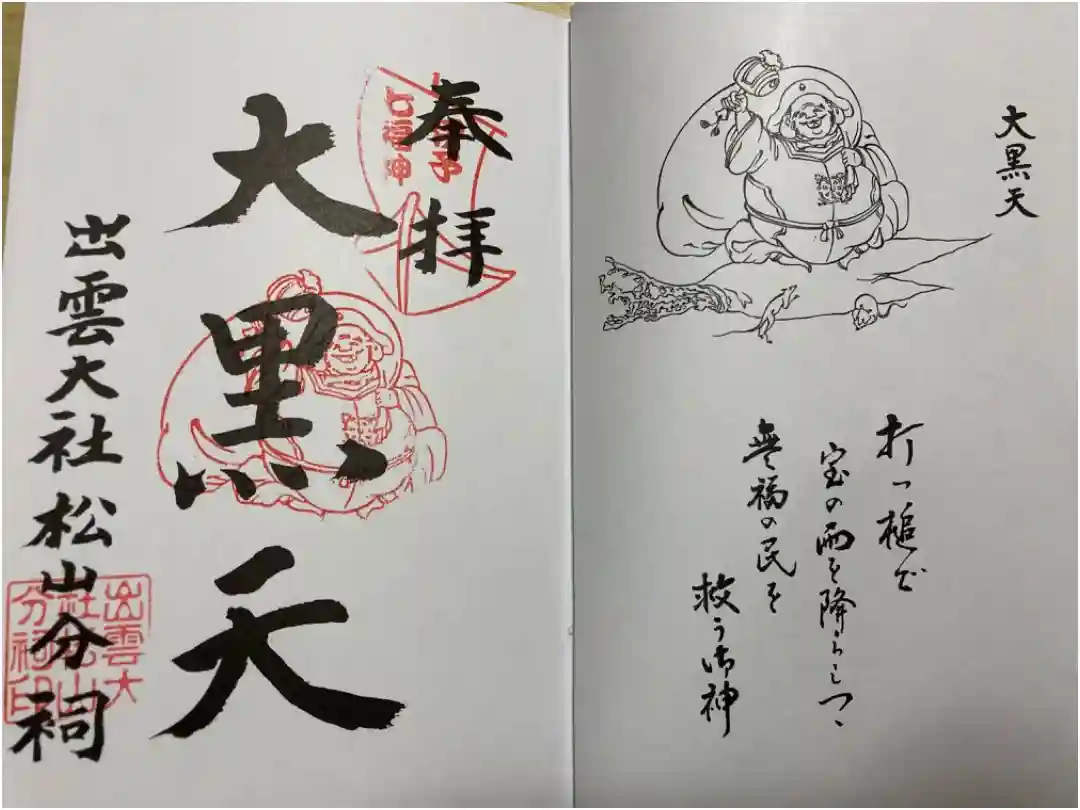 大黒天
打つ槌で
宝の雨を降らしつゝ
無福の民を
救う御神
奉拝
七福神
大黒天
出雲大社松山分祠
出雲大
社松山
分祠印